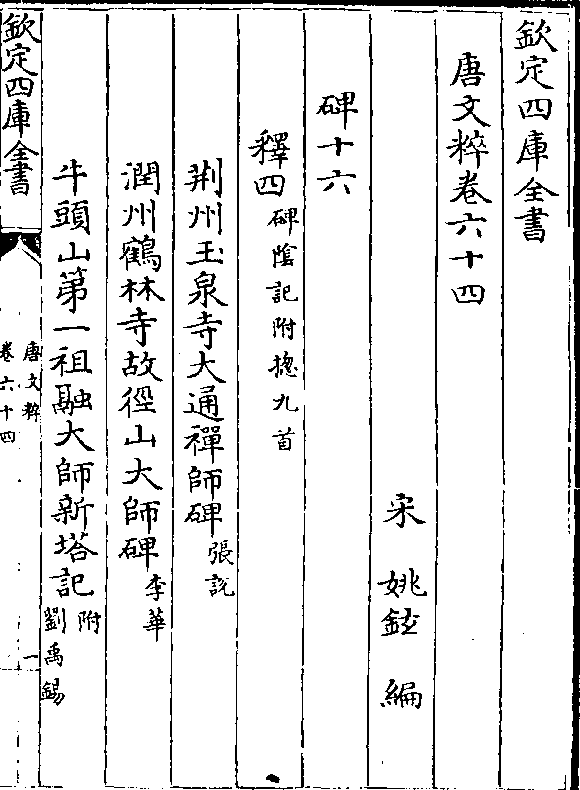 欽定四庫全書
唐文粹卷六十四
宋 姚鉉 編
碑十六
釋四碑隂記附揔九首
荆州玉泉寺大通禪師碑張說
潤州鶴林寺故徑山大師碑李華
牛頭山第一祖融大師新塔記附劉禹錫
欽定四庫全書
唐文粹
卷六十四
一